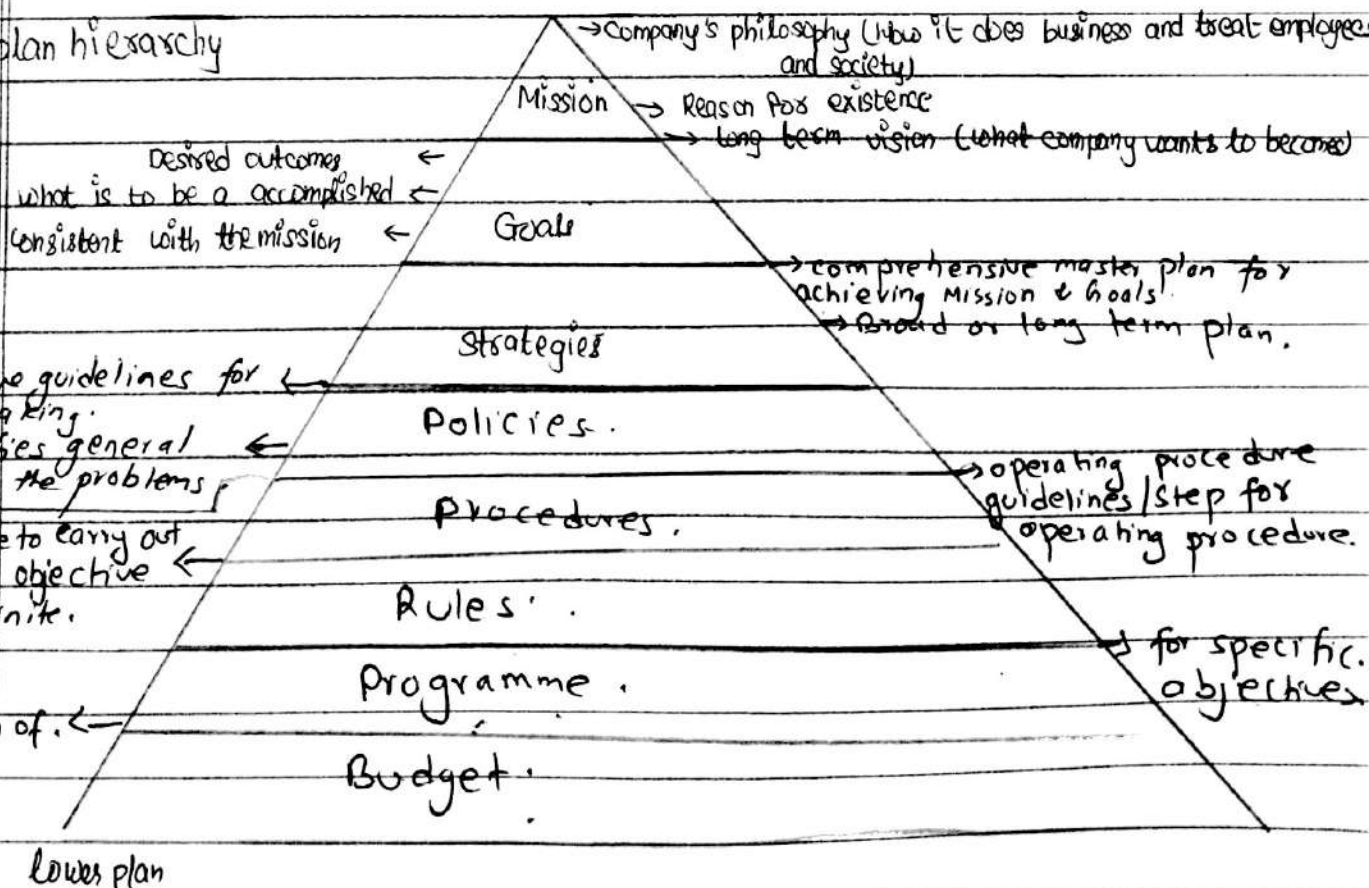 plan hierarchy
→ Company's philosophy (how it does business and treat employees
and society)
Mission → Reason for existence
→ long term vision (what company wants to become)
Desired outcomes ←
what is to be a accomplished ←
consistent with the mission ←
Goals
→ comprehensive master plan for
achieving Mission & Goals.
→ Broad or long term plan.
Strategies
guidelines for ←
Policies.
general ←
the problems
→ operating procedure
guidelines / step for
operating procedure.
Procedures.
to carry out
objective ←
Rules.
→ for specific.
objectives
Programme.
of. ←
Budget.
lower plan